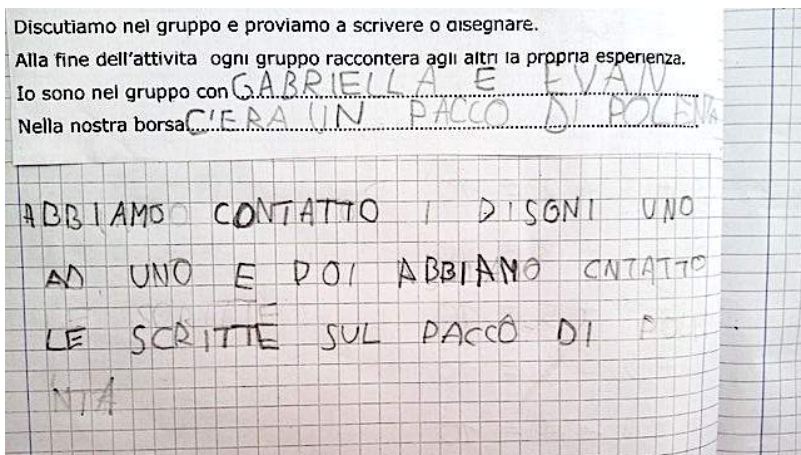 Discutiamo nel gruppo e proviamo a scrivere o disegnare.
Alla fine dell'attivita ogni gruppo raccontera agli altri la propria esperienza.
Io sono nel gruppo con GABRIELLA E EVAN
Nella nostra borsa C'ERA UN PACCO DI POLENTA
ABBIAMO CONTATTO I DISGNI UNO
AD UNO E POI ABBIAMO CNTATTO
LE SCRITTE SUL PACCO DI
NTA